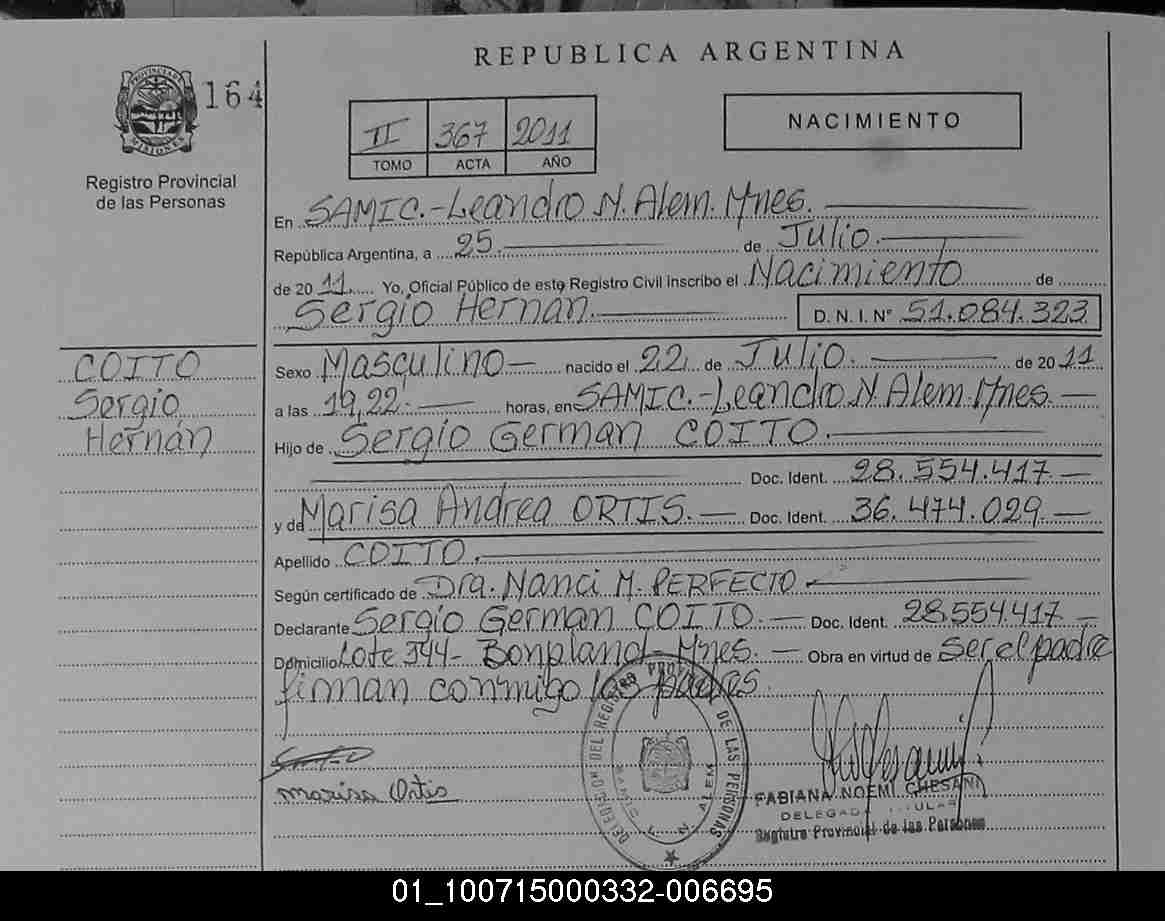 REPUBLICA ARGENTINA
PROVINCIA DE
MISIONES
164
Registro Provincial
de las Personas
II 367 2011
TOMO ACTA AÑO
NACIMIENTO
En SAMIC.-Leandro N. Alem. Mnes.
República Argentina, a 25 de Julio
de 20 11 Yo, Oficial Público de este Registro Civil inscribo el Nacimiento de
Sergio Hernan. D. N. I. Nº 51.084.323
Sexo Masculino nacido el 22 de Julio. de 20 11
a las 19,22 horas, en SAMIC.-Leandro N. Alem. Mnes.
Hijo de Sergio German COITO.
Doc. Ident. 28.554.417
y de Marisa Andrea ORTIS. Doc. Ident. 36.474.029
Apellido COITO.
Según certificado de Dra. Nanci M. PERFECTO
Declarante Sergio German COITO. Doc. Ident. 28.554.417
Domicilio Lote 344- Bonpland- Mnes. Obra en virtud de ser el padre
firman conmigo los padres
COITO
Sergio
Hernán
Marisa Ortis
DELEGACION DEL REGISTRO PROV. DE LAS PERSONAS
L. N. ALEM
FABIANA NOEMI CHESANI
DELEGADA TITULAR
Registro Provincial de las Personas
01_100715000332-006695